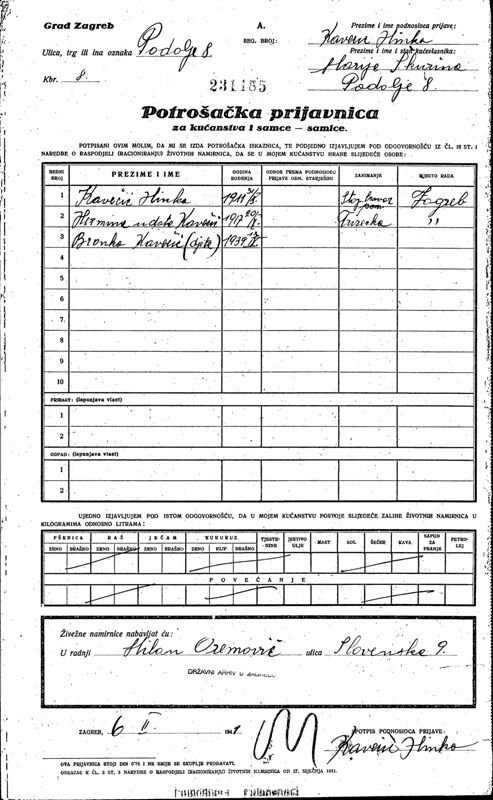 Grad Zagreb
Ulica, trg ili ina oznaka Podolje 8
Kbr. 8.
A.
REG. BROJ:
231185
Prezime i ime podnosioca prijave:
Kavečić Hinko
Prezime i ime stan. kućevlasnika:
Marije Skurina
Podolje 8.
Potrošačka prijavnica
za kućanstva i samce — samice.
POTPISANI OVIM MOLIM, DA MI SE IZDA POTROŠAČKA ISKAZNICA, TE PODJEDNO IZJAVLJUJEM POD ODGOVORNOŠĆU IZ ČL. 15 ST. 1
NAREDBE O RASPODJELI (RACIONIRANJU) ŽIVOTNIH NAMIRNICA, DA SE U MOJEM KUĆANSTVU HRANE SLIJEDEĆE OSOBE:
REDNI BROJ PREZIME I IME GODINA ROĐENJA ODNOS PREMA PODNOSIOCU PRIJAVE ODN. STARJEŠINI ZANIMANJE MJESTO RADA
1 Kavečić Hinko 1911 Zagreb
2 Hermina udata Kavečić
3 Branko Kavečić (dijete) 1939
4
5
6
7.
8
9
10
PRIRAST: (ispunjava vlast)
1
2
ODPAD: (ispunjava vlast)
1
2
UJEDNO IZJAVLJUJEM POD ISTOM ODGOVORNOŠĆU, DA U MOJEM KUĆANSTVU POSTOJE SLIJEDEĆE ZALIHE ŽIVOTNIH NAMIRNICA U
KILOGRAMIMA ODNOSNO LITRAMA:
PŠENICA RAŽ JEČAM KUKURUZ TJESTENINE JESTIVO ULJE MAST SOL ŠEĆER KAVA SAPUN ZA PRANJE PETROLEJ
ZRNO BRAŠNO ZRNO BRAŠNO ZRNO BRAŠNO ZRNO KLIP BRAŠNO
POVEĆANJE
Živežne namirnice nabavljat ću:
U radnji Milan Oremović ulica Slovenska 9.
DRŽAVNI ARHIV U ZAGREBU
ZAGREB, 6 II. 1941
POTPIS PODNOSIOCA PRIJAVE:
Kavečić Hinko
OVA PRIJAVNICA STOJI DIN 0.75 I NE SMIJE SE SKUPLJE PRODAVATI.
OBRAZAC K ČL. 2 ST. 2 NAREDBE O RASPODJELI (RACIONIRANJU) ŽIVOTNIH NAMIRNICA OD 27. SIJEČNJA 1941.